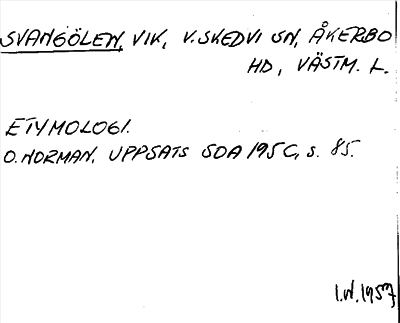 SVANGÖLEN, VIK, V. SKEDVI SN, ÅKERBO
HD, VÄSTM. L.
ETYMOLOGI.
O. NORMAN, UPPSATS SOA 195C, s. 85.
I.W. 1957